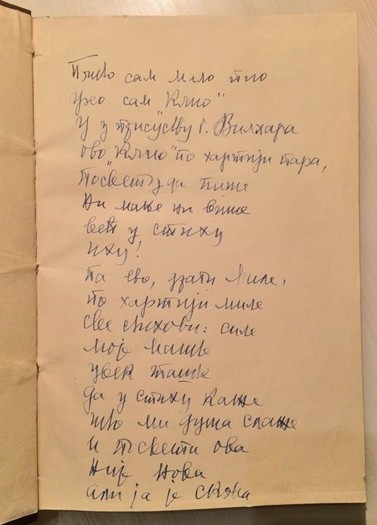 Пиво сам мало пио
узео сам "Клио"
у присуству г. Вилхара
ово "Клио" по хартији пара,
посвету да пише
Ни мање ни више
већ у стиху
иху!
па ево, драги Миле,
по хартији миле
све стихови: силе
моје маше
увек таше
да у стиху каже
што ми душа слаже
и посвета ова
није нова
али ја је